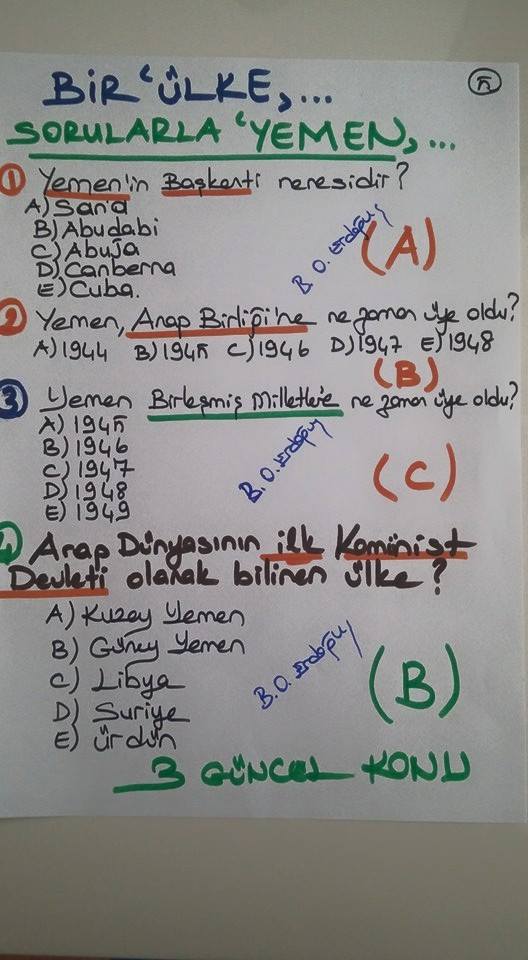 BİR 'ÜLKE, ...
5
SORULARLA 'YEMEN, ...
1 Yemen'in Başkenti neresidir?
A) San'a
B) Abudabi
C) Abuja
D) Canberra
E) Cuba.
B. O. Erdoğuş
(A)
2 Yemen, Arap Birliği'ne ne zaman üye oldu?
A) 1944 B) 1945 C) 1946 D) 1947 E) 1948
(B)
3 Yemen Birleşmiş Milletler'e ne zaman üye oldu?
A) 1945
B) 1946
C) 1947
D) 1948
E) 1949
B. O. Erdoğuş
(C)
4 Arap Dünyasının ilk Kominist
Devleti olarak bilinen ülke?
A) Kuzey Yemen
B) Güney Yemen
C) Libya
D) Suriye
E) Ürdün
B. O. Erdoğuş
(B)
3 GÜNCEL KONU